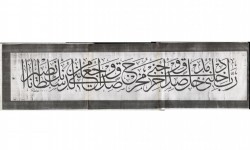 رب أدخلني مدخل صدق وأخرجني مخرج صدق واجعل لي من لدنك سلطانا نصيرا